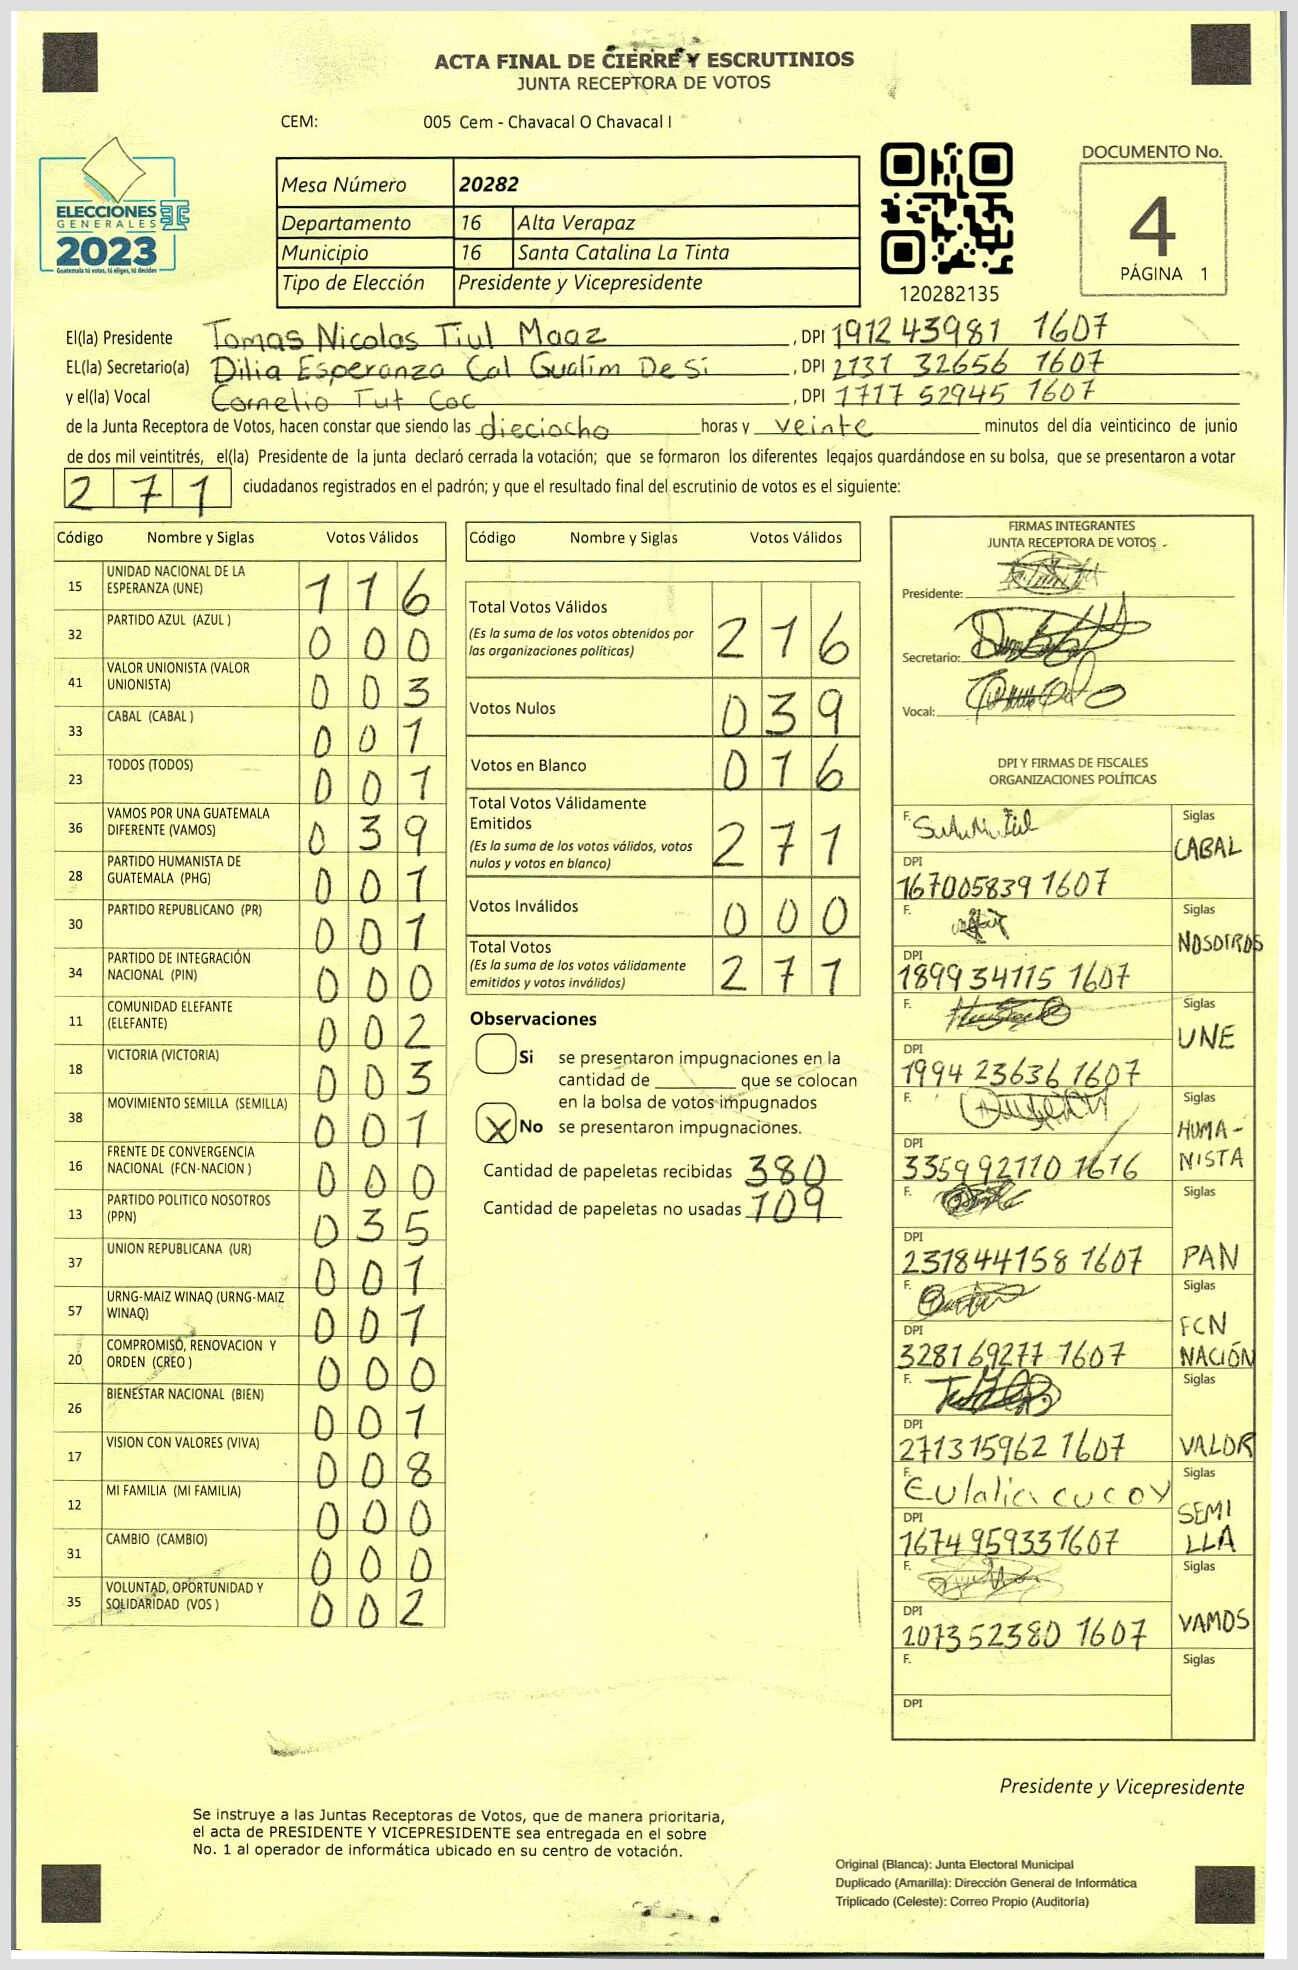 ACTA FINAL DE CIERRE Y ESCRUTINIOS
JUNTA RECEPTORA DE VOTOS
CEM: 005 Cem - Chavacal O Chavacal I
ELECCIONES
GENERALES
2023
Guatemala tú votas, tú eliges, tú decides
Mesa Número 20282
Departamento 16 Alta Verapaz
Municipio 16 Santa Catalina La Tinta
Tipo de Elección Presidente y Vicepresidente
120282135
DOCUMENTO No.
4
PÁGINA 1
El(la) Presidente Tomas Nicolas Tiul Maaz , DPI 1912 43981 1607
EL(la) Secretario(a) Dilia Esperanza Cal Gualim De Si , DPI 2131 32656 1607
y el(la) Vocal Cornelio Tut Coc , DPI 1717 52945 1607
de la Junta Receptora de Votos, hacen constar que siendo las dieciocho horas y veinte minutos del día veinticinco de junio
de dos mil veintitrés, el(la) Presidente de la junta declaró cerrada la votación; que se formaron los diferentes legajos guardándose en su bolsa, que se presentaron a votar
271 ciudadanos registrados en el padrón; y que el resultado final del escrutinio de votos es el siguiente:
Código Nombre y Siglas Votos Válidos
15 UNIDAD NACIONAL DE LA
ESPERANZA (UNE) 116
32 PARTIDO AZUL (AZUL ) 000
41 VALOR UNIONISTA (VALOR
UNIONISTA) 003
33 CABAL (CABAL ) 001
23 TODOS (TODOS) 001
36 VAMOS POR UNA GUATEMALA
DIFERENTE (VAMOS) 039
28 PARTIDO HUMANISTA DE
GUATEMALA (PHG) 001
30 PARTIDO REPUBLICANO (PR) 001
34 PARTIDO DE INTEGRACIÓN
NACIONAL (PIN) 000
11 COMUNIDAD ELEFANTE
(ELEFANTE) 002
18 VICTORIA (VICTORIA) 003
38 MOVIMIENTO SEMILLA (SEMILLA) 001
16 FRENTE DE CONVERGENCIA
NACIONAL (FCN-NACION ) 000
13 PARTIDO POLITICO NOSOTROS
(PPN) 035
37 UNION REPUBLICANA (UR) 001
57 URNG-MAIZ WINAQ (URNG-MAIZ
WINAQ) 001
20 COMPROMISO, RENOVACION Y
ORDEN (CREO ) 000
26 BIENESTAR NACIONAL (BIEN) 001
17 VISION CON VALORES (VIVA) 008
12 MI FAMILIA (MI FAMILIA) 000
31 CAMBIO (CAMBIO) 000
35 VOLUNTAD, OPORTUNIDAD Y
SOLIDARIDAD (VOS ) 002
Código Nombre y Siglas Votos Válidos
Total Votos Válidos
(Es la suma de los votos obtenidos por
las organizaciones políticas) 216
Votos Nulos 039
Votos en Blanco 016
Total Votos Válidamente
Emitidos
(Es la suma de los votos válidos, votos
nulos y votos en blanco) 271
Votos Inválidos 000
Total Votos
(Es la suma de los votos válidamente
emitidos y votos inválidos) 271
Observaciones
Si se presentaron impugnaciones en la
cantidad de ________ que se colocan
en la bolsa de votos impugnados
X No se presentaron impugnaciones.
Cantidad de papeletas recibidas 380
Cantidad de papeletas no usadas 109
FIRMAS INTEGRANTES
JUNTA RECEPTORA DE VOTOS
Presidente:
Secretario:
Vocal:
DPI Y FIRMAS DE FISCALES
ORGANIZACIONES POLÍTICAS
F. Siglas
CABAL
DPI
167005839 1607
F. Siglas
NOSOTROS
DPI
1899 34115 1607
F. Siglas
UNE
DPI
1994 23636 1607
F. Siglas
HUMA-
NISTA
DPI
335992110 1616
F. Siglas
PAN
DPI
231844158 1607
F. Siglas
FCN
NACIÓN
DPI
328169277 1607
F. Siglas
VALOR
DPI
271315962 1607
F. Eulalia cucoy Siglas
SEMI
LLA
DPI
1674 95933 1607
F. Siglas
VAMOS
DPI
207352380 1607
F. Siglas
DPI
Presidente y Vicepresidente
Se instruye a las Juntas Receptoras de Votos, que de manera prioritaria,
el acta de PRESIDENTE Y VICEPRESIDENTE sea entregada en el sobre
No. 1 al operador de informática ubicado en su centro de votación.
Original (Blanca): Junta Electoral Municipal
Duplicado (Amarilla): Dirección General de Informática
Triplicado (Celeste): Correo Propio (Auditoría)